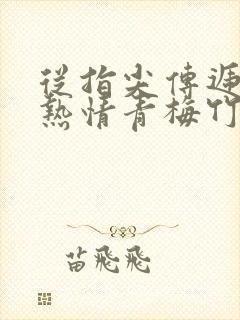 從指尖傳遞
熱情青梅竹
苗飛飛